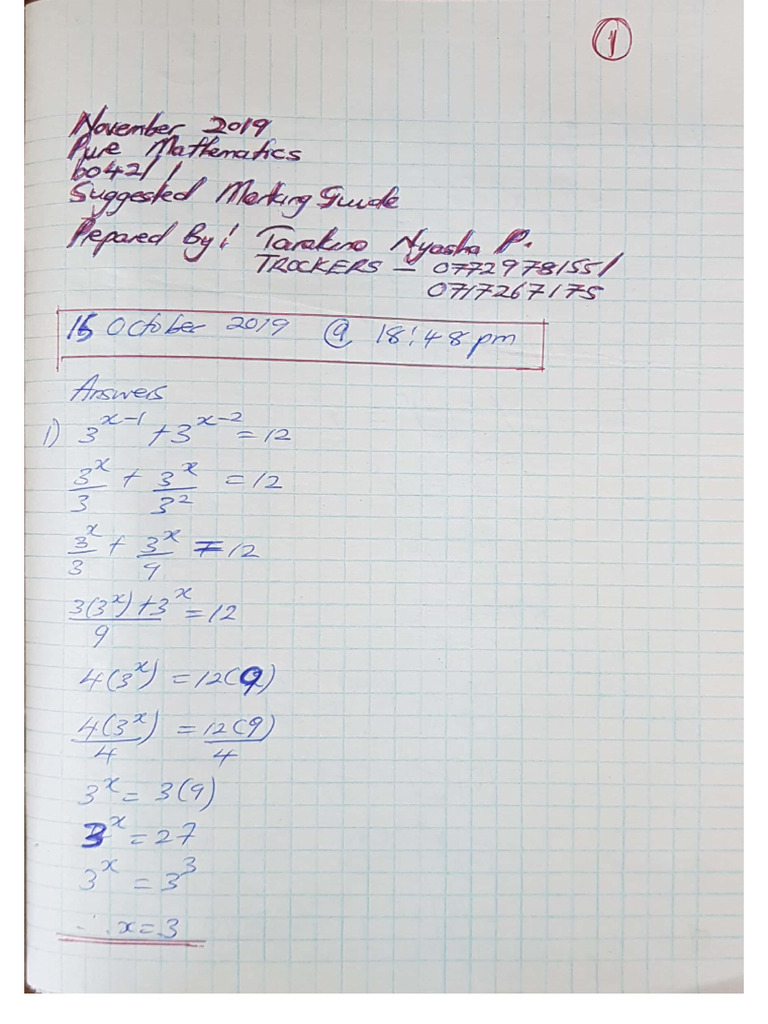 1
November 2019
Pure Mathematics
6042/1
Suggested Marking Guide
Prepared By: Tarakino Nyasha P.
TROCKERS – 0772978155/
0717267175
15 October 2019 @ 18:48pm
Answers
1) 3^{x-1} + 3^{x-2} = 12
3^x/3 + 3^x/3^2 = 12
3^x/3 + 3^x/9 = 12
(3(3^x)+3^x)/9 = 12
4(3^x) = 12(9)
4(3^x)/4 = 12(9)/4
3^x = 3(9)
3^x = 27
3^x = 3^3
∴ x=3